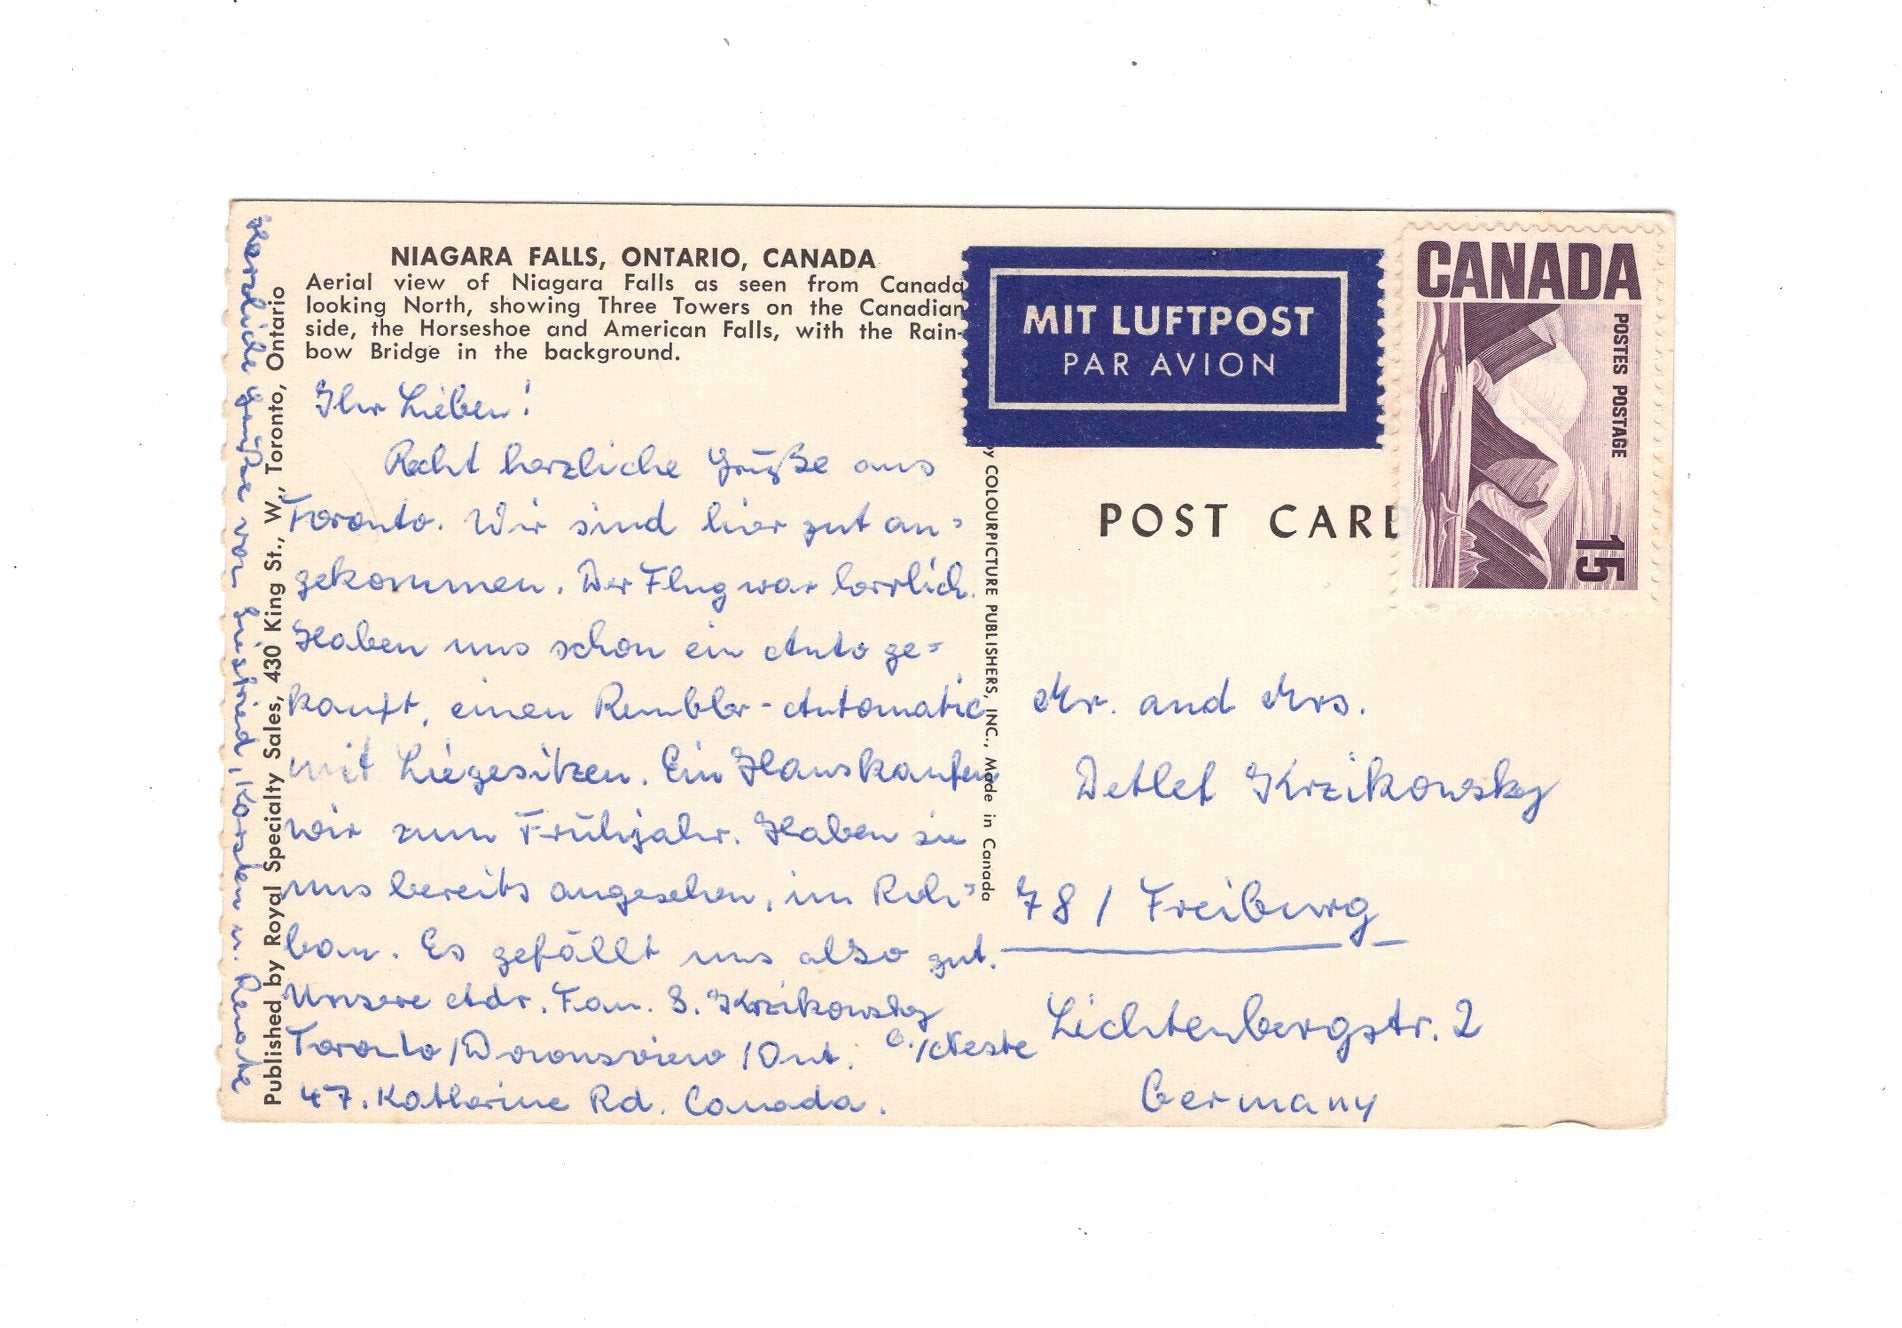 NIAGARA FALLS, ONTARIO, CANADA
Aerial view of Niagara Falls as seen from Canada
looking North, showing Three Towers on the Canadian
side, the Horseshoe and American Falls, with the Rain-
bow Bridge in the background.
Ihr Lieben!
Recht herzliche Grüße aus
Toronto. Wir sind hier gut an=
gekommen. Der Flug war herrlich.
Haben uns schon ein Auto ge=
kauft, einen Rembler-Automatic
mit Liegesitzen. Ein Haus kaufen
wir zum Frühjahr. Haben sie
uns bereits angesehen, im Roh=
bau. Es gefällt uns also gut.
Unsere Adr. Fam. S. Krzikowsky
Toronto/Downsview/Ont. c./Neste
47. Katherine Rd. Canada.
Herzliche Grüße von Siegfried, Karsten u. Renate
Published by Royal Specialty Sales, 430 King St., W., Toronto, Ontario
by COLOURPICTURE PUBLISHERS, INC., Made in Canada
MIT LUFTPOST
PAR AVION
CANADA
POSTES POSTAGE
15
POST CARD
Mr. and Mrs.
Detlef Krzikowsky
78 / Freiburg
Lichtenbergstr. 2
Germany